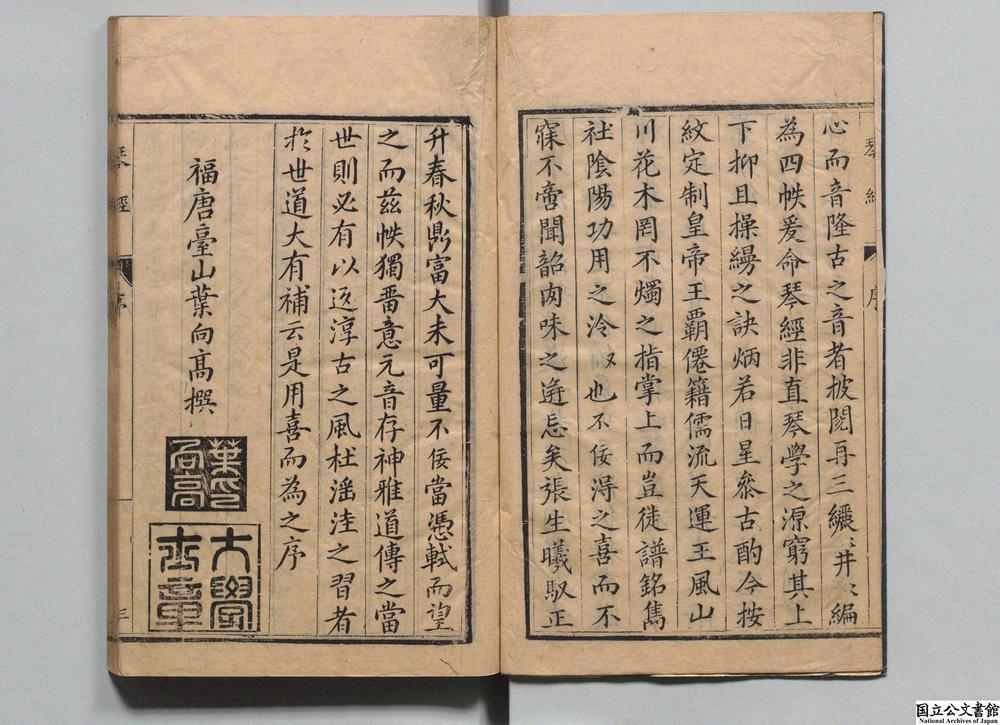 心而音隆古之音者披閱再三纚〻井〻編
為四帙爰命琴經非直琴學之源窮其上
下抑且操縵之訣炳若日星叅古酌今按
紋定制皇帝王霸僊籍儒流天運王風山
川花木罔不燭之指掌上而豈徒譜銘雋
社陰陽功用之泠〻也不佞淂之喜而不
寐不啻聞韶肉味之遊忘矣張生曦馭正
升春秋鼎富大未可量不佞當憑軾而望
之而茲帙獨畱意元音存神雅道傳之當
世則必有以返淳古之風杜滛洼之習者
於世道大有補云是用喜而為之序
福唐臺山葉向高撰
葉向高
大學士章
琴經
序
三
琴經
序
国立公文書館
National Archives of Japan